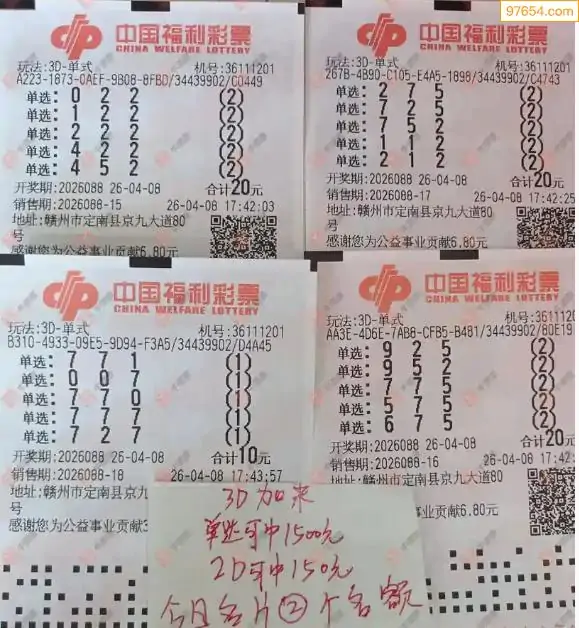 97654.com
中国福利彩票
CHINA WELFARE LOTTERY
玩法:3D-单式 机号:36111201
A223-1873-0AEF-9B08-8FBD/34439902/C0449
单选: 0 2 2 (2)
单选: 1 2 2 (2)
单选: 2 2 2 (2)
单选: 4 2 2 (2)
单选: 4 5 2 (2)
开奖期:2026088 26-04-08 合计20元
销售期:2026088-15 26-04-08 17:42:03
地址:赣州市定南县京九大道80
号
感谢您为公益事业贡献6.80元
中国福利彩票
CHINA WELFARE LOTTERY
玩法:3D-单式 机号:36111201
267B-4B90-C105-E4A5-1898/34439902/C4743
单选: 2 7 5 (2)
单选: 7 2 5 (2)
单选: 7 5 2 (2)
单选: 1 1 2 (2)
单选: 2 1 2 (2)
开奖期:2026088 26-04-08 合计20元
销售期:2026088-17 26-04-08 17:42:25
地址:赣州市定南县京九大道80
号
感谢您为公益事业贡献6.80元
中国福利彩票
CHINA WELFARE LOTTERY
玩法:3D-单式 机号:36111201
B310-4933-09E5-9D94-F3A5/34439902/D4A45
单选: 7 7 1 (1)
单选: 0 0 7 (1)
单选: 7 7 0 (1)
单选: 7 7 7 (1)
单选: 7 2 7 (1)
开奖期:2026088 26-04-08 合计10元
销售期:2026088-18 26-04-08 17:43:57
地址:赣州市定南县京九
号
感谢您为公益事业贡献3
中国福利彩票
CHINA WELFARE LOTTERY
玩法:3D-单式 机号:36111201
AA3E-4D6E-7AB8-CFB5-B481/34439902/8DE19
单选: 9 2 5 (2)
单选: 9 5 2 (2)
单选: 7 7 5 (2)
单选: 5 7 5 (2)
单选: 6 7 5 (2)
开奖期:2026088 26-04-08 合计20元
销售期:2026088-16 26-04-08 17:42:
地址:赣州市定南县京九大道80
业贡献6.80元
3D加来
单选可中1500元
2D可中150元
今日名片②个名额